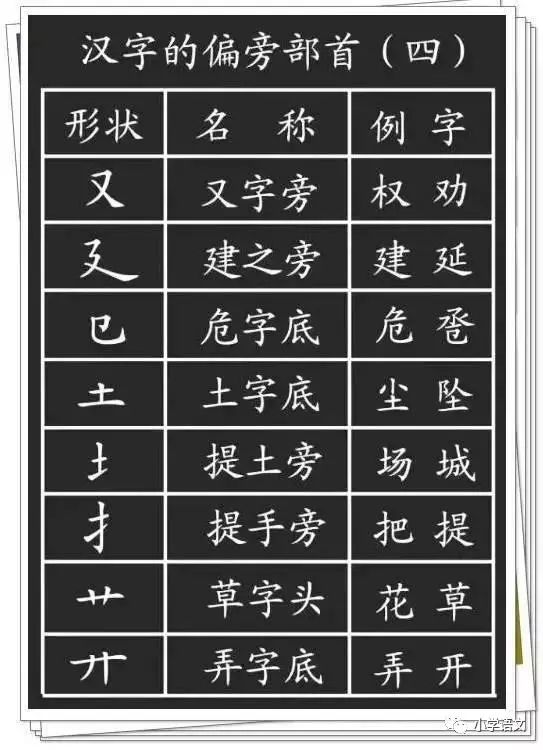 汉字的偏旁部首（四）
形状 名 称 例 字
又 又字旁 权 劝
廴 建之旁 建 延
㔾 危字底 危 卺
土 土字底 尘 坠
土 提土旁 场 城
扌 提手旁 把 提
艹 草字头 花 草
廾 弄字底 弄 开
小学语文